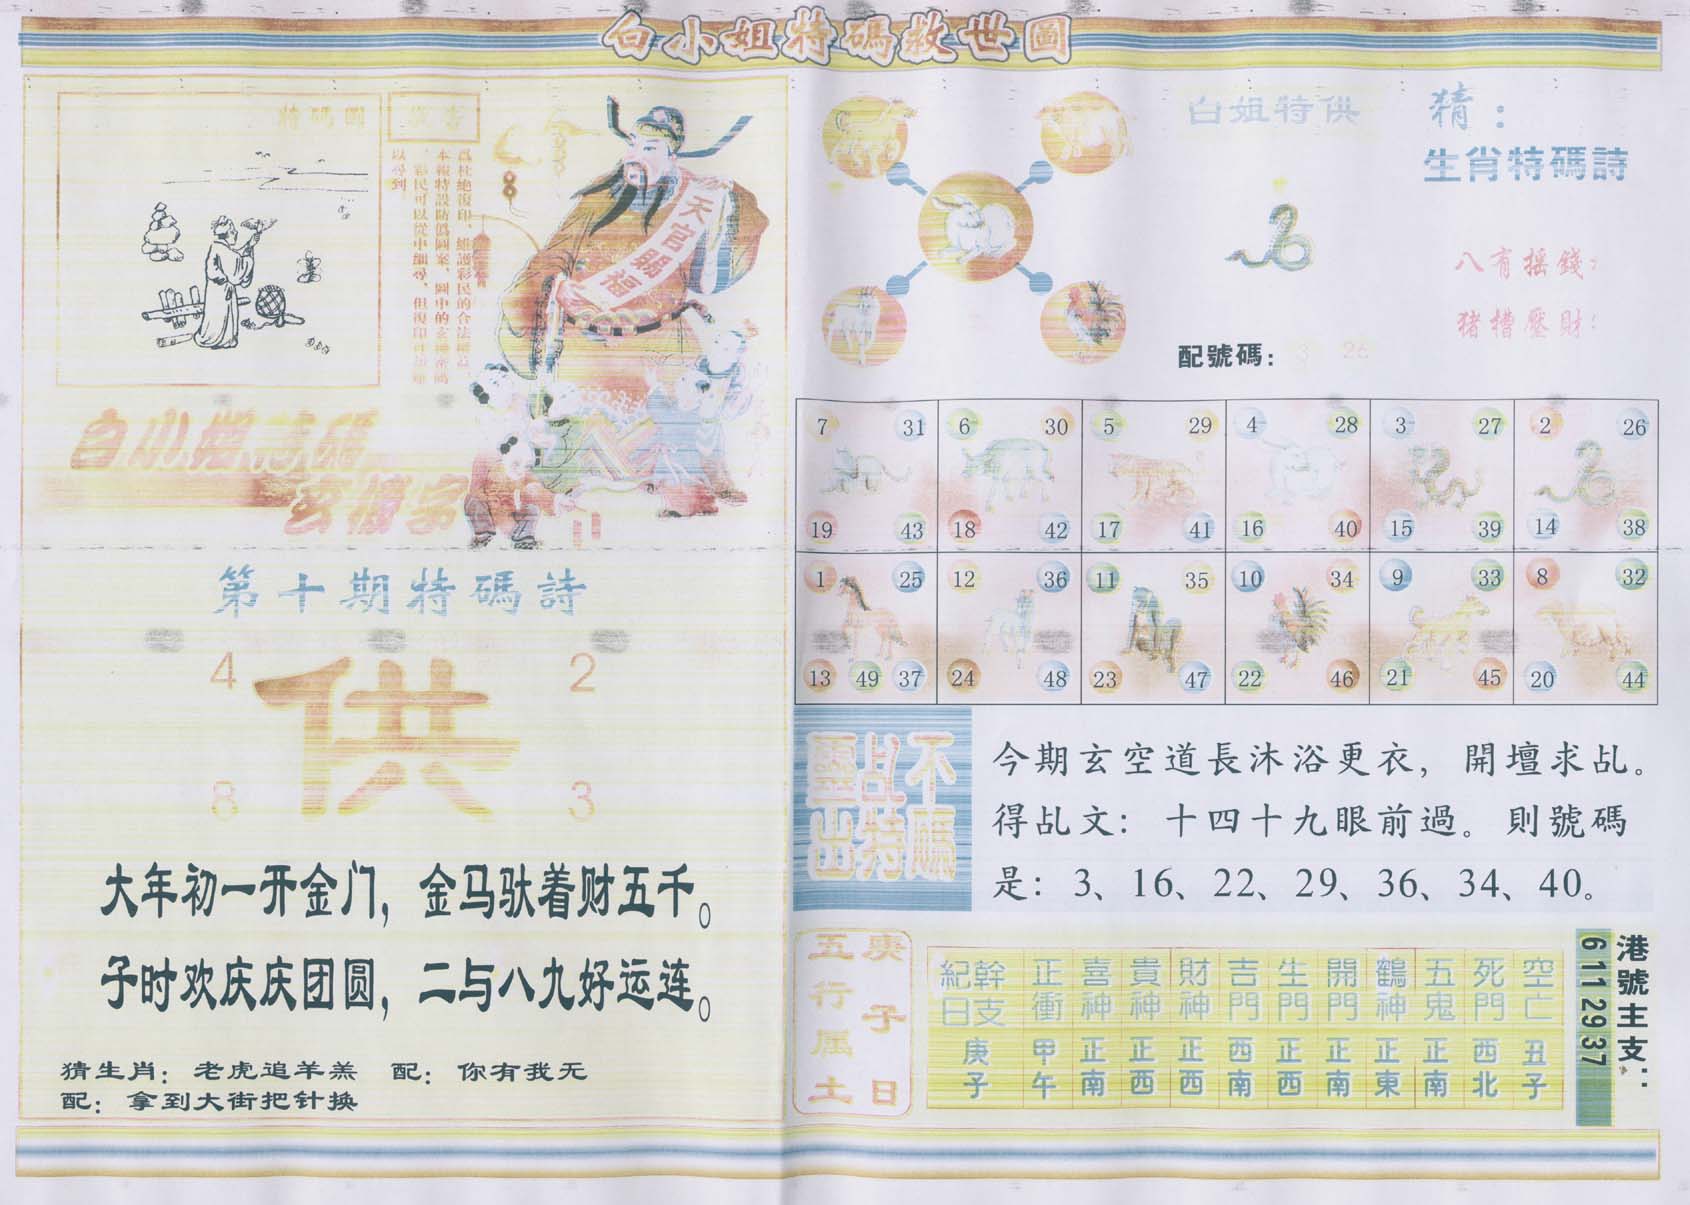 白小姐特碼救世圖
特碼圖
為杜絕復印、維護彩民的合法權益、
本報特設防僞圖案、圖中的玄機
、彩民可以從中細尋、但復印件却難
以尋到
天官賜福
白小姐特碼
玄機字
第十期特碼詩
4 2
供
8 3
大年初一开金门，金马驮着财五千。
子时欢庆庆团圆，二与八九好运连。
猜生肖：老虎追羊羔 配：你有我无
配：拿到大街把针换
白姐特供
配號碼： 3 26
猜：
生肖特碼詩
八有摇錢；
猪槽壓財：
7 31 6 30 5 29 4 28 3 27 2 26
19 43 18 42 17 41 16 40 15 39 14 38
1 25 12 36 11 35 10 34 9 33 8 32
13 49 37 24 48 23 47 22 46 21 45 20 44
不
占
靈
碼
特
出
今期玄空道長沐浴更衣，開壇求乩。
得乩文：十四十九眼前過。則號碼
是：3、16、22、29、36、34、40。
庚子日
五行属土
紀日 幹支 正衝 喜神 貴神 財神 吉門 生門 開門 鶴神 五鬼 死門 空亡
庚子 甲午 正南 正西 正西 西南 正西 正南 正東 正南 西北 丑子
港號主支：
6 11 29 37